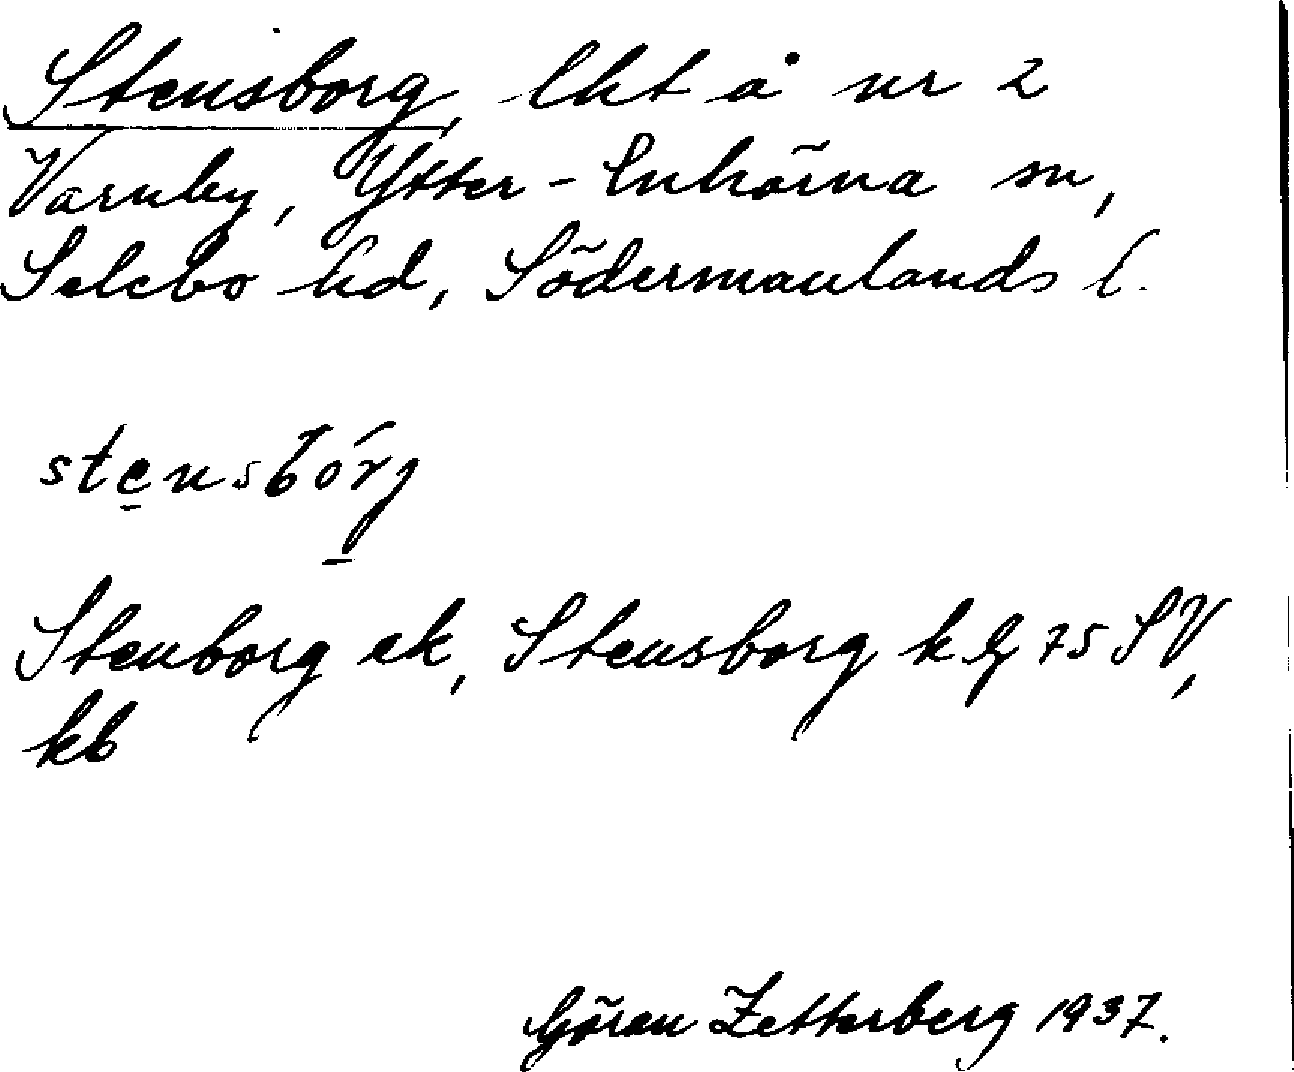 Stensborg, lht å nr 2
Varnby, Ytter-Enhörna sn,
Selebo hd, Södermanlands l.
stensbórj
Stenborg ek, Stensborg k bl 75 SV,
kb
Göran Zetterberg 1937.